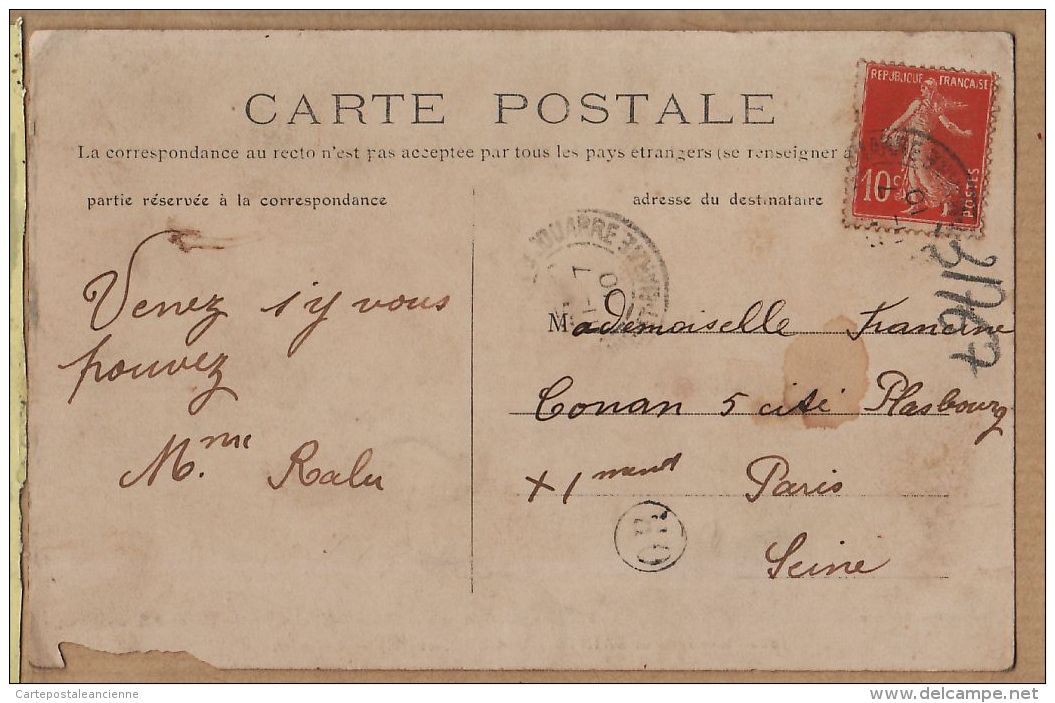 CARTE POSTALE
La correspondance au recto n'est pas acceptee par tous les pays etrangers (se renseigner à
partie réservée à la correspondance
adresse du destinataire
REPUBLIQUE FRANÇAISE
10c
POSTES
JOUARRE
Venez s'y vous
pouvez
Mme Ralu
Mademoiselle Francine
Conan 5 cité Plasbourg
Paris
Seine
OR
Cartepostaleancienne
www.delcampe.net